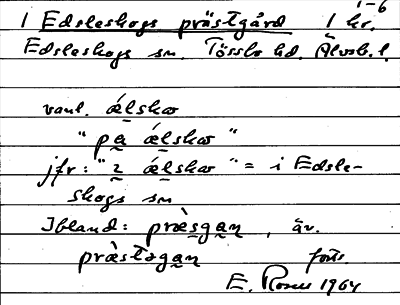 1-6
1 Edsleskogs prästgård 1 hr.
Edsleskogs sn. Tössbo hd. Älvsb. l.
vanl. ǽlskoɷ
"pa ǽlskoɷ"
jfr: "ɩ ǽlskoɷ" = i Edsle-
skogs sn
Ibland: præ̀sgan, äv.
præ̀stəgan forts.
E. Rosus 1964